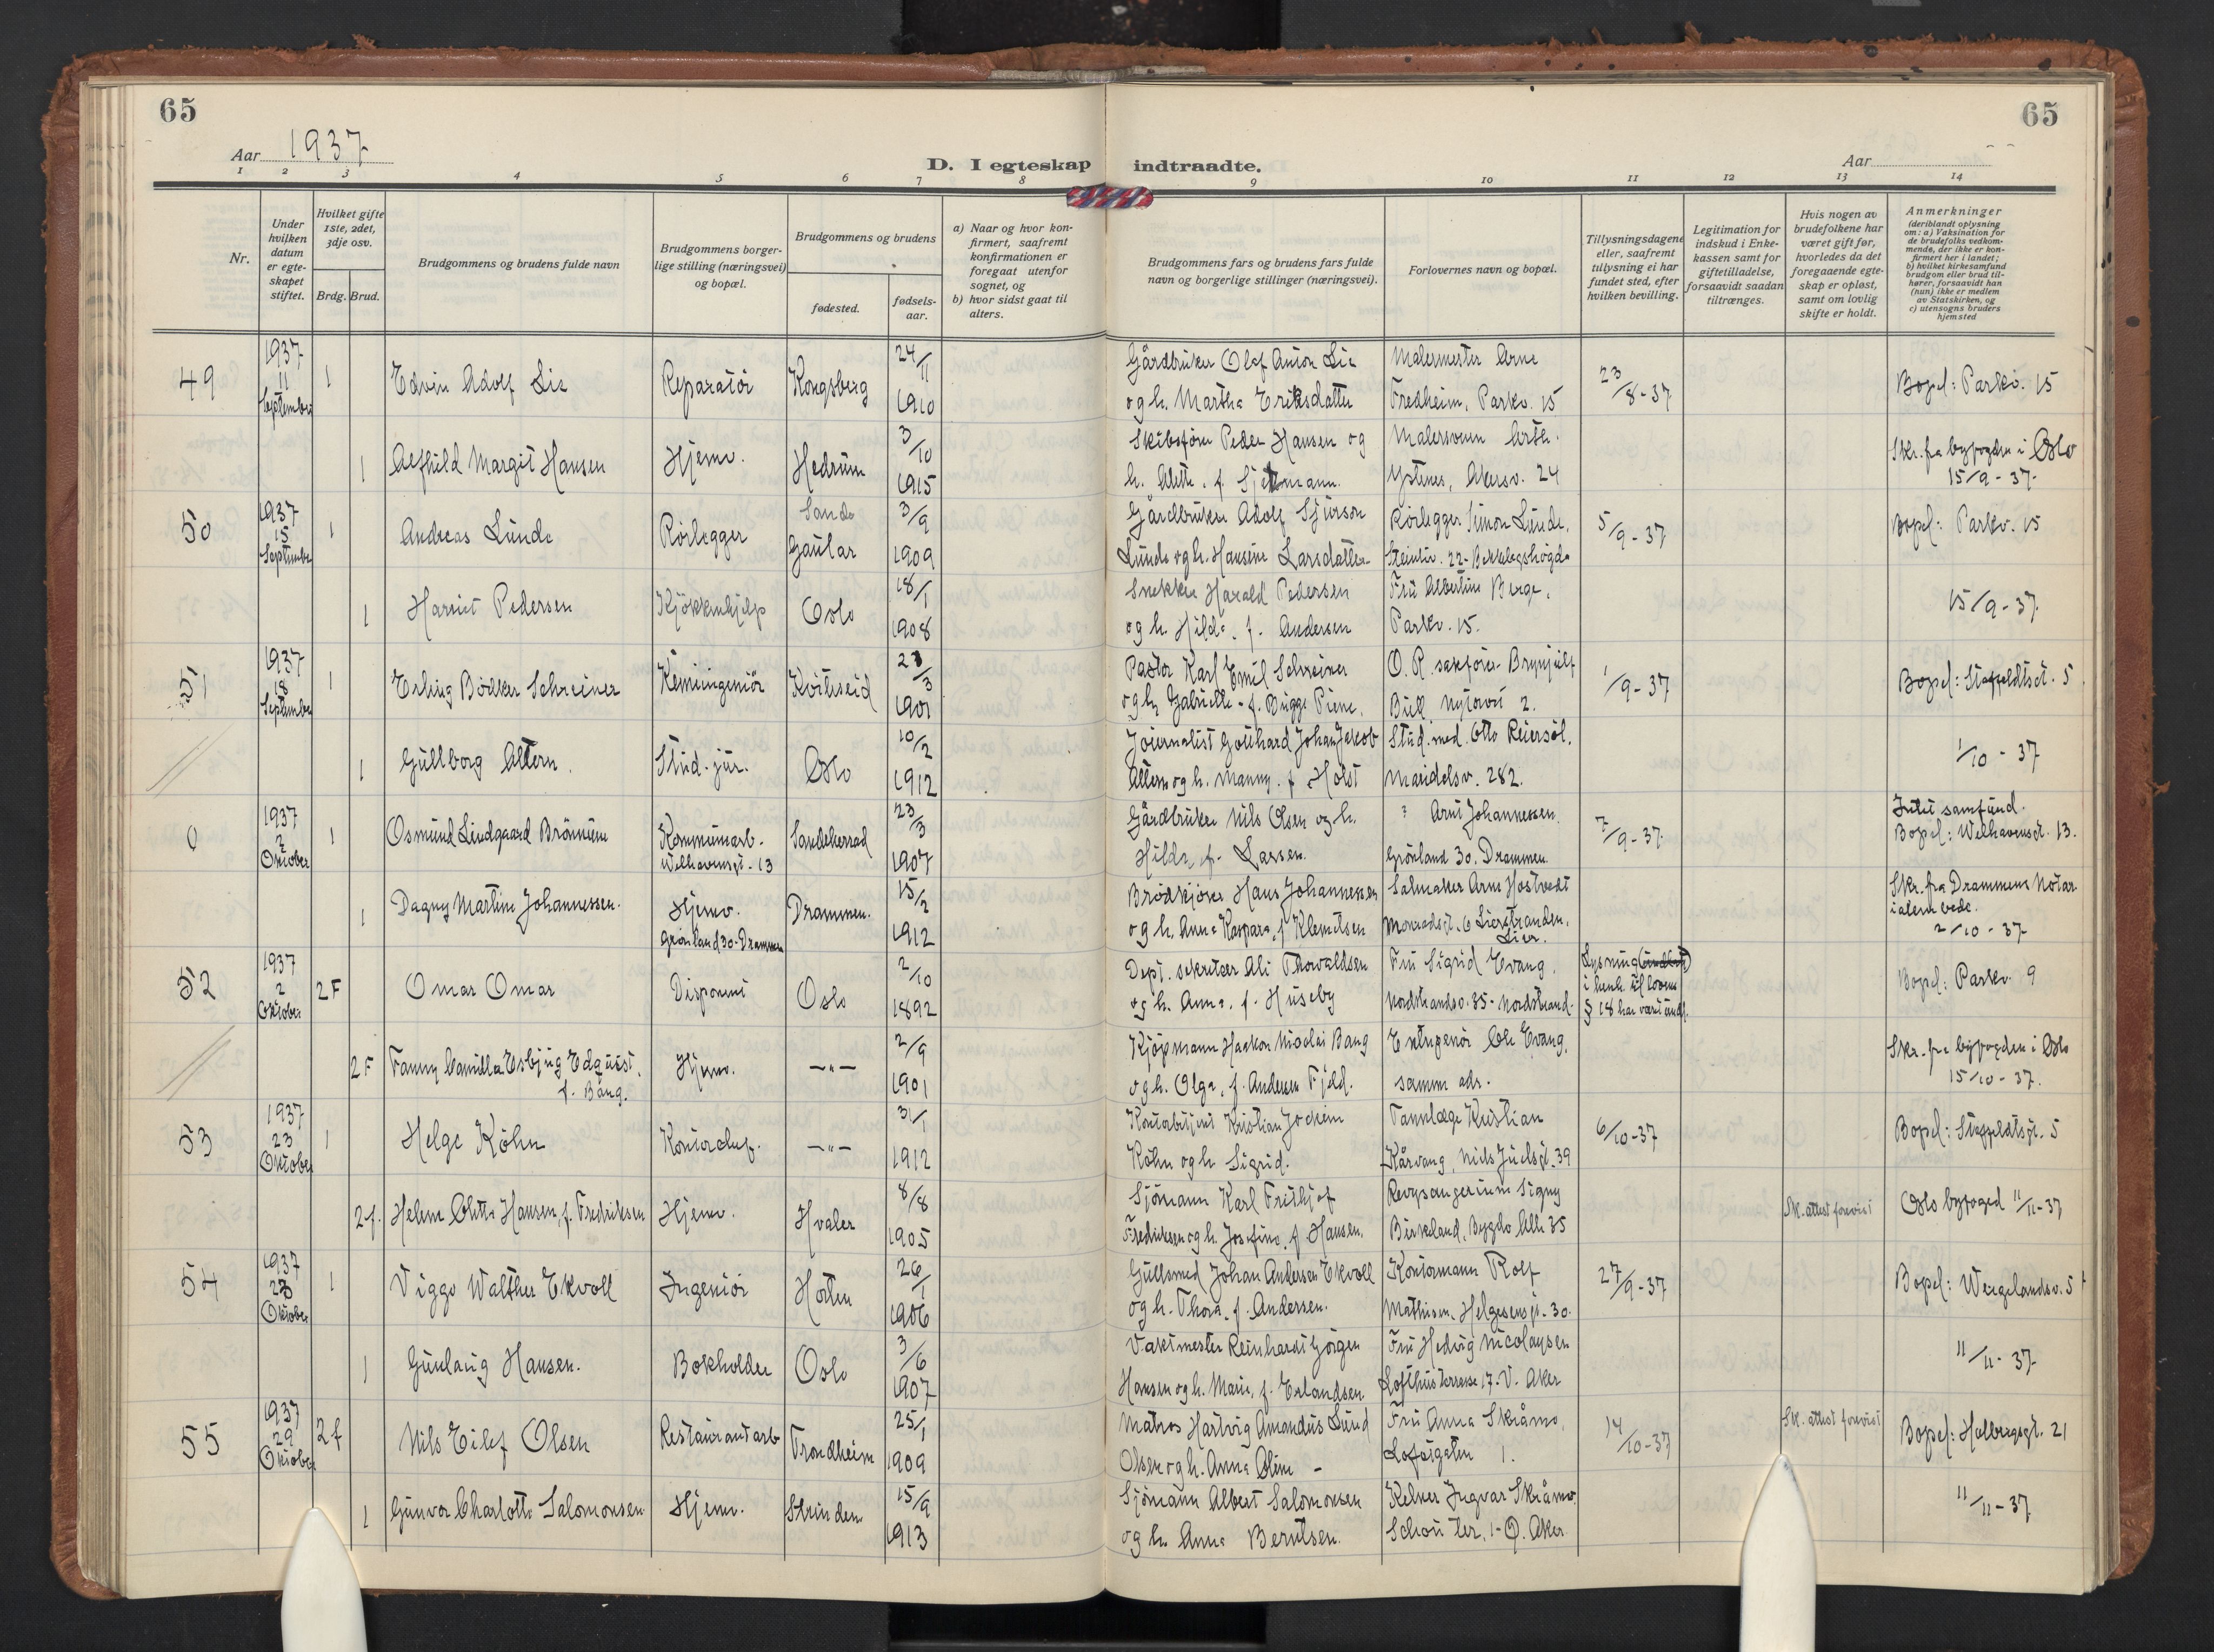 65
65
Aar 1937
D. I egteskap indtraadte.
Aar
1 2 3 4 5 6 7 8 9 10 11 12 13 14
Nr.
Under hvilken datum er egteskapet stiftet.
Hvilket gifte 1ste, 2det, 3dje osv.
Brdg. Brud.
Brudgommens og brudens fulde navn
Brudgommens borgerlige stilling (næringsvei) og bopæl.
Brudgommens og brudens
fødested.
fødselsaar.
a) Naar og hvor konfirmert, saafremt konfirmationen er foregaat utenfor sognet, og
b) hvor sidst gaat til alters.
Brudgommens fars og brudens fars fulde navn og borgerlige stillinger (næringsvei).
Forlovernes navn og bopæl.
Tillysningsdagene eller, saafremt tillysning ei har fundet sted, efter hvilken bevilling.
Legitimation for indskud i Enkekassen samt for giftetilladelse, forsaavidt saadan tiltrænges.
Hvis nogen av brudefolkene har været gift før, hvorledes da det foregaaende egteskap er opløst, samt om lovlig skifte er holdt.
Anmerkninger
(deriblandt oplysning om: a) Vaksination for de brudefolks vedkommende, der ikke er konfirmert her i landet;
b) hvilket kirkesamfund brudgom eller brud tilhører, forsaavidt han (hun) ikke er medlem av Statskirken, og
c) utensogns bruders hjemsted
49 1937 11 September 1 Edvin Adolf Lie Reparatör Kongsberg 24/11 1910 Gårdbruker Olaf Anton Lie og h. Martha Eriksdatter Malermester Arne Fredheim, Parkv. 15 23/8-37 Bopel: Parkv. 15
1 Alfhild Margit Hansen Hjemv. Hedrum 3/10 1915 Skibsförer Peder Hansen og h. Alette, f. Malersvenn Arth. Ystenes, Akersv. 24 Skr. fra byfogden i Oslo 15/9-37.
50 1937 15 September 1 Andreas Lunde Rörlegger Sande Gaular 3/9 1909 Gårdbruker Adolf Sjurson Lunde og h. Hansine Larsdatter Rörlegger Simon Lunde, Steinliv. 22- Bekkelagshögda 5/9-37 Bopel: Parkv. 15
1 Harriet Pedersen Kjökkenhjelp Oslo 18/1 1908 Snekker Harald Pedersen og h. Hilda, f. Andersen Fru Albertine Berge, Parkv. 15. 15/9-37.
51 1937 18 September 1 Erling Bödker Schreiner Kemiingeniör Kviteseid 23/3 1901 Pastor Karl Emil Schreiner og h. Gabrielle, f. Brigge Piene. O. R. sakförer Brynjulf Bull Nytorvi 2. 1/9-37 Bopel: Staffeldtsgt. 5
1 Gullborg Altern Stud. jur. Oslo 10/2 1912 Journalist Gotthard Johan Jakob Altern og h. Manny. f. Holst Stud. med. Otto Reiersöl, Maridalsv. 282. 1/10-37
0 1937 2 Oktober 1 Osmund Lindgaard Brönnum Kommunearb. Welhavensgt. 13 Sandeherrad 23/3 1907 Gårdbruker Nils Olsen og h. Hilda, f. Larsen. ? Arnt Johannessen Grönland 30. Drammen 7/9-37. Intet samfund. Bopel: Welhavensgt. 13.
1 Dagny Martine Johannessen. Hjemv. Grönland 30-Drammen Drammen. 15/2 1912 Brödkjörer Hans Johannessen og h. Anna Kaspara, f. Klemetsen Salmaker Arne Hostvedt Monradsgt. 6 Lierstranden, Lier. Skr. fra Drammens Notarialembede. 2/10-37
52 1937 2 Oktober 2F Omar Omar Disponent Oslo 2/10 1892 Dept. sekretær Ali Thorvaldsen og h. Anna, f. Huseby Fru Sigrid Evang. Nordstrandsv. 35- Nordstrand. Lysning i henh. til lovens § 18 har vært undl. Bopel: Parkv. 9
2F Fanny Camilla Esbjug Edquist, f. Bang. Hjemv. -"- 2/9 1901 Kjöpmann Haakon Nicolai Bang og h. Olga, f. Andersen Fjeld. Entrepenör Ole Evang, samme adr. Skr. fra byfogden i Oslo 15/10-37.
53 1937 23 Oktober 1 Helge Köhn Kontorchef. -"- 3/1 1912 Kontorbetjent Kristian Jockim Köhn og h. Sigrid. Tannlæge Kristian Kårvang, Niels Juelsgt. 39 6/10-37 Bopel: Staffeldtsgt. 5
2f. Helene Olette Hansen, f. Fredriksen Hjemv. Hvaler 8/8 1905 Sjömann Karl Frithjof Fredriksen og h. Josefine, f. Hansen. Revysangerinne Signy Birkeland, Bygdö Allé 35 Sk. attest forevist Oslo byfoged 11/11-37
54 1937 23 Oktober 1 Viggo Walther Ekvoll Ingeniör Horten 26/1 1906 Gullsmed Johan Andersen Ekvoll og h. Thora, f. Andersen. Kontormann Rolf Mathisen. Helgesensgt. 30. 27/9-37 Bopel: Wergelandsv. 5
1 Gunlaug Hansen. Bokholder Oslo 3/6 1907 Vaktmester Reinhardt Görgen Hansen og h. Marie, f. Erlandsen Fru Hedvig Nicolaysen Lofthusterrasse, 17. V. Aker 11/11-37.
55 1937 29 Oktober 2f Nils Eilef Olsen Restaurantarb Trondheim 25/1 1909 Matros Hartvig Amandus Lund Olsen og h. Anna Oline - Fru Anna Skråmo, Lofotgaten 1. 14/10-37 Sk. attest forevist Bopel: Holbergsgt. 21
1 Gunvor Charlotte Salomonsen Hjemv. Strinden 15/9 1913 Sjömann Albert Salomonsen og h. Anna Berntsen. Kelner Ingvar Skråmo. Schou ter. 1-Ø. Aker 11/11-37